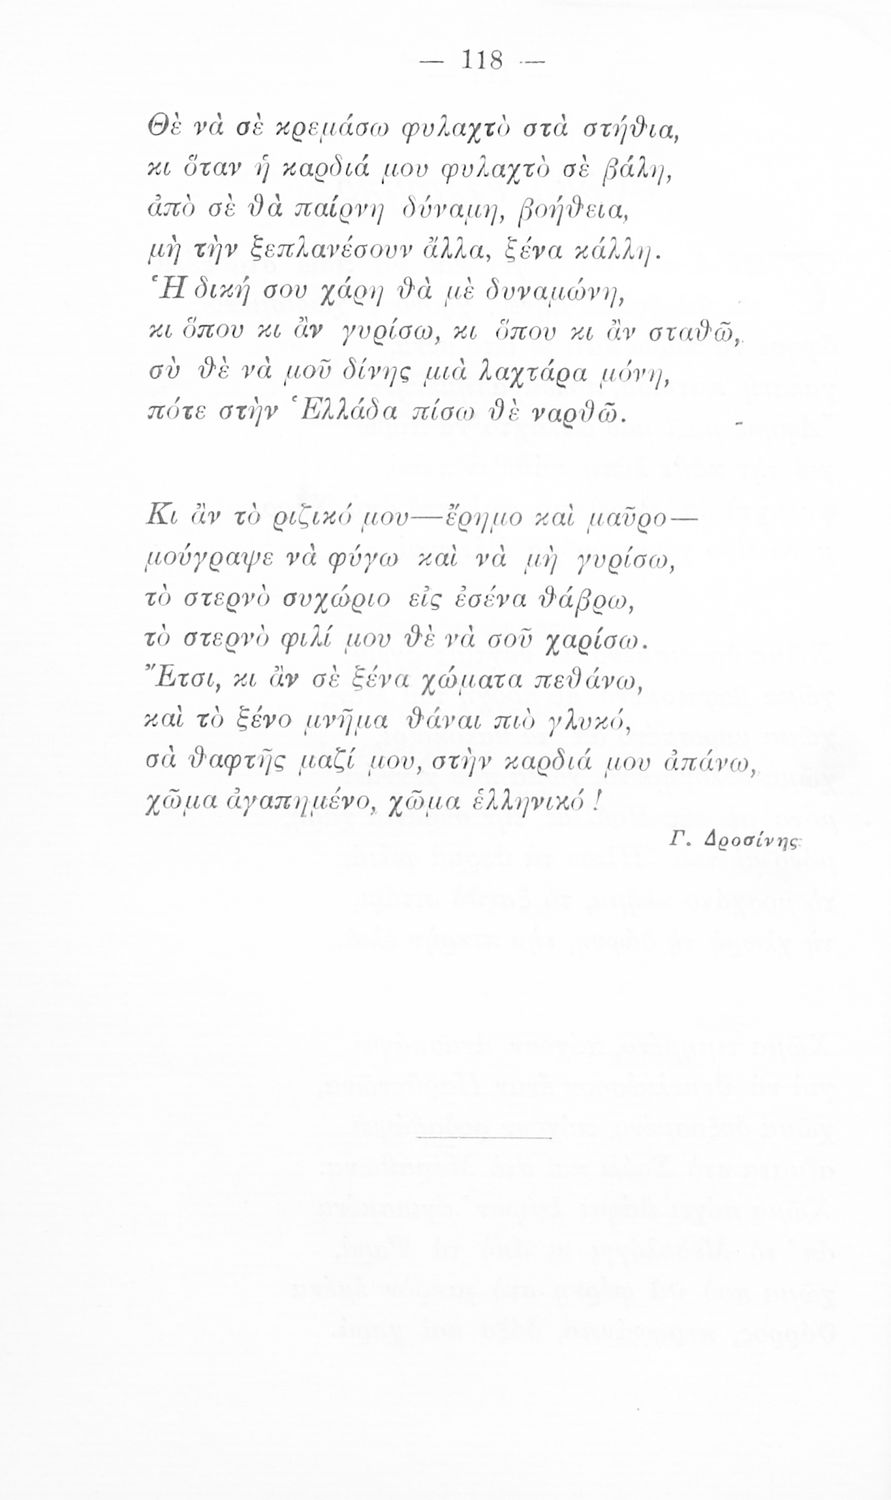 — 118 —
Θὲ νὰ σὲ κρεμάσω φυλαχτὸ στὰ στήθια,
κι ὅταν ἡ καρδιά μου φυλαχτὸ σὲ βάλῃ,
ἀπὸ σὲ θὰ παίρνῃ δύναμη, βοήθεια,
μὴ τὴν ξεπλανέσουν ἄλλα, ξένα κάλλη.
Ἡ δική σου χάρη θὰ μὲ δυναμώνῃ,
κι ὅπου κι ἂν γυρίσω, κι ὅπου κι ἂν σταθῶ,
σὺ θὲ νὰ μοῦ δίνῃς μιὰ λαχτάρα μόνη,
πότε στὴν Ἑλλάδα πίσω θὲ ναρθῶ.
Κι ἂν τὸ ριζικό μου—ἔρημο καὶ μαῦρο—
μούγραψε νὰ φύγω καὶ νὰ μὴ γυρίσω,
τὸ στερνὸ συχώριο εἰς ἐσένα θάβρω,
τὸ στερνὸ φιλί μου θὲ νὰ σοῦ χαρίσω.
Ἔτσι, κι ἂν σὲ ξένα χώματα πεθάνω,
καὶ τὸ ξένο μνῆμα θάναι πιὸ γλυκό,
σὰ θαφτῇς μαζί μου, στὴν καρδιά μου ἀπάνω,
χῶμα ἀγαπημένο, χῶμα ἑλληνικό !
Γ. Δροσίνης